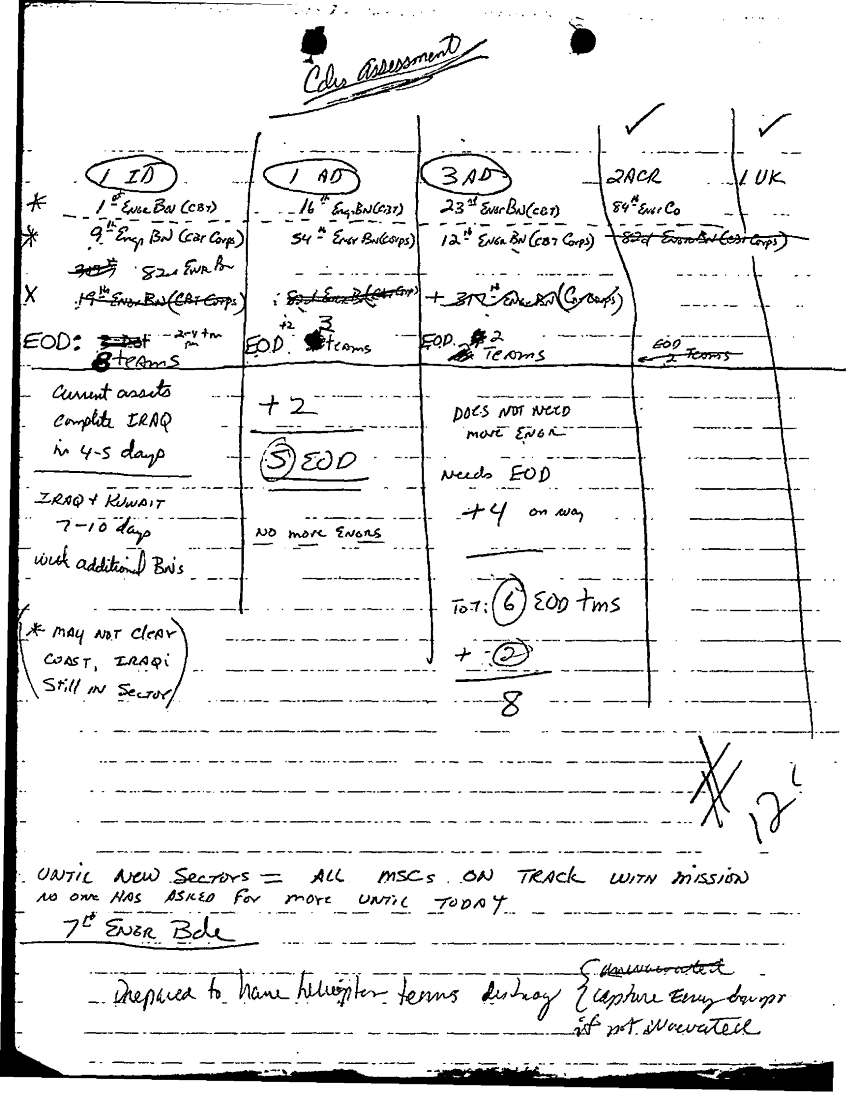 Cdrs Assessment
✓ ✓
1 ID 1 AD 3 AD 2ACR 1 UK
* 1st Engr BN (CBT) 16th Engr BN (CBT) 23rd Engr BN (CBT) 84th Engr Co
* 9th Engr BN (CBT Corps) 54th Engr BN (Corps) 12th ENGR BN (CBT Corps) 82d ENGR BN (CBT Corps)
82d ENGR BN
X 19th ENGR BN (CBT Corps) 82d Engr BN (CBT Corps) + 317th ENGR BN (Co Corps)
EOD: 2-4 tm +2 3 EOD. 2 EOD
8 teams EOD: teams TEAMS 2 Teams
Current assets
complete IRAQ
in 4-5 days
IRAQ + KUWAIT
7-10 days
with additional BN's
(* MAY NOT CLEAR
COAST, IRAQI
Still IN SECTOR)
+2
5 EOD
NO more ENGRS
DOES NOT NEED
more ENGR
Needs EOD
+4 on way
TOT: 6 EOD tms
+ 2
8
12
UNTIL NEW SECTORS = ALL MSCs ON TRACK WITH MISSION
NO ONE HAS ASKED FOR MORE UNTIL TODAY
7th ENGR Bde
Prepared to have helicopter teams destroy { capture Enemy
if not